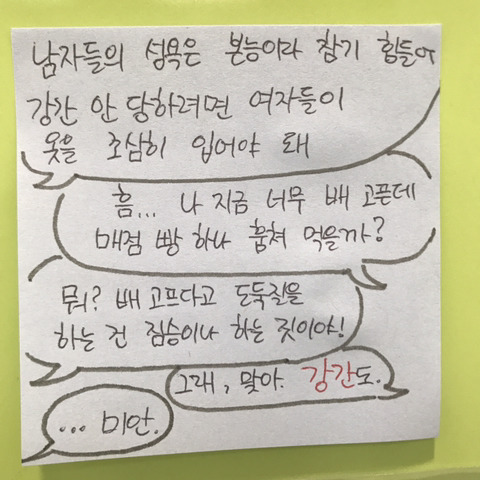 남자들의 성욕은 본능이라 참기 힘들어
강간 안 당하려면 여자들이
옷을 조심히 입어야 돼
흠... 나 지금 너무 배 고픈데
매점 빵 하나 훔쳐 먹을까?
뭐? 배 고프다고 도둑질을
하는 건 짐승이나 하는 짓이야!
그래, 맞아. 강간도.
... 미안.